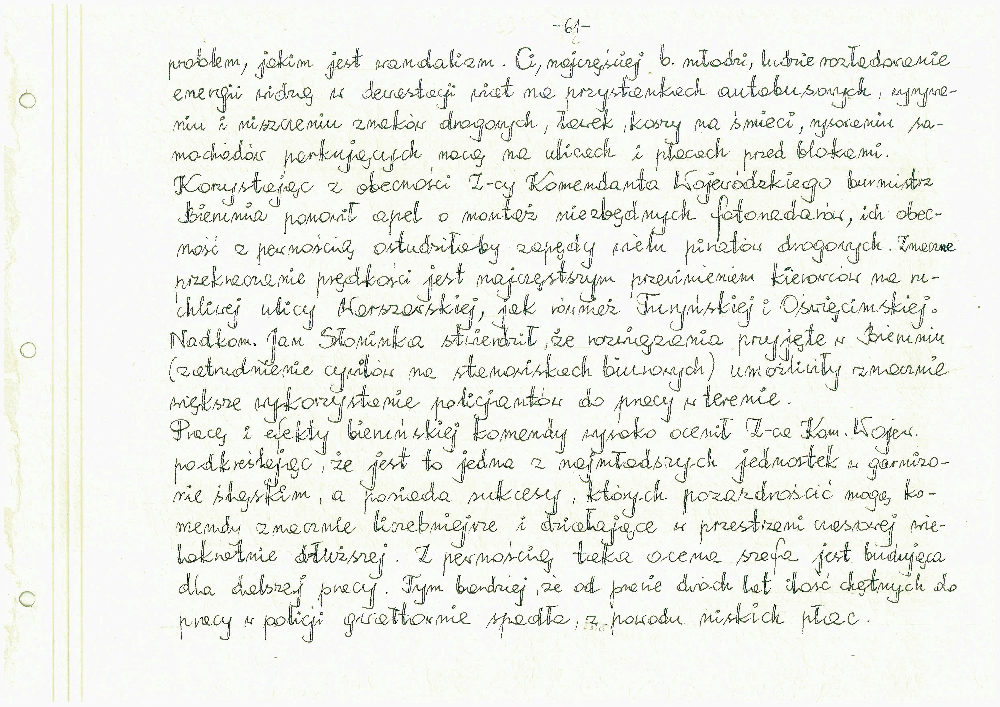 -61-
problem, jakim jest wandalizm. Ci, najczęściej b. młodzi, ludzie rozładowanie
energii widzą w dewastacji wiat na przystankach autobusowych, wyrywa-
niu i niszczeniu znaków drogowych, ławek, koszy na śmieci, rysowaniu sa-
mochodów parkujących nocą na ulicach i placach przed blokami.
Korzystając z obecności Z-cy Komendanta Wojewódzkiego burmistrz
Bierunia ponowił apel o montaż niezbędnych fotoradarów, ich obec-
ność z pewnością ostudziłaby zapędy wielu piratów drogowych. Znaczne
przekraczanie prędkości jest najczęstszym przewinieniem kierowców na ru-
chliwej ulicy Warszawskiej, jak również Turyńskiej i Oświęcimskiej.
Nadkom. Jan Słoninka stwierdził, że rozwiązania przyjęte w Bieruniu
(zatrudnienie cywilów na stanowiskach biurowych) umożliwiły znacznie
większe wykorzystanie policjantów do pracy w terenie.
Pracę i efekty bieruńskiej komendy wysoko ocenił Z-ca Kom. Wojew.
podkreślając, że jest to jedna z najmłodszych jednostek w garnizo-
nie śląskim, a posiada sukcesy, których pozazdrościć mogą ko-
mendy znacznie liczebniejsze i działające w przestrzeni czasowej wie-
lokrotnie dłuższej. Z pewnością taka ocena szefa jest budująca
dla dalszej pracy. Tym bardziej, że od prawie dwóch lat ilość chętnych do
pracy w policji gwałtownie spadła, z powodu niskich płac.